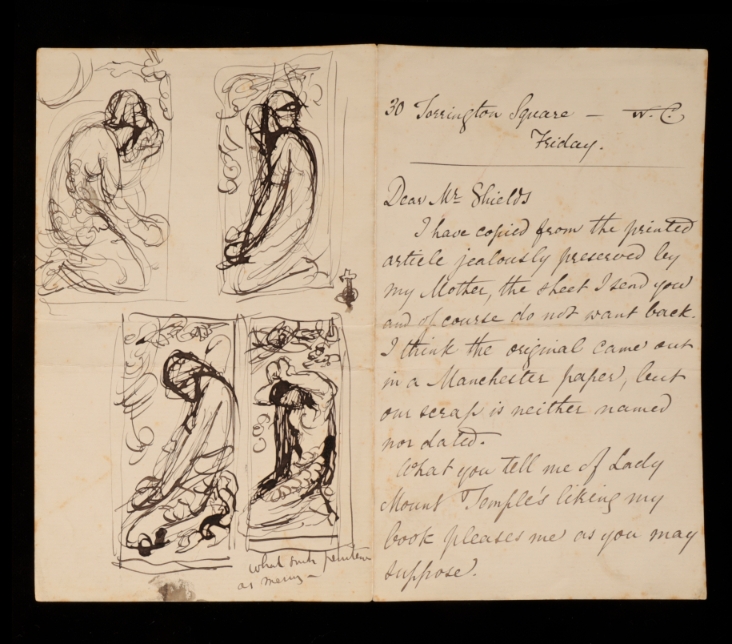 30 Torrington Square — W. C.
Friday.
Dear Mr. Shields
I have copied from the printed
article jealously preserved by
my Mother, the sheet I send you
and of course do not want back.
I think the original came out
in a Manchester paper, but
our scrap is neither named
nor dated.
What you tell me of Lady
Mount Temple's liking my
book pleases me as you may
suppose.
what such
as mercy —